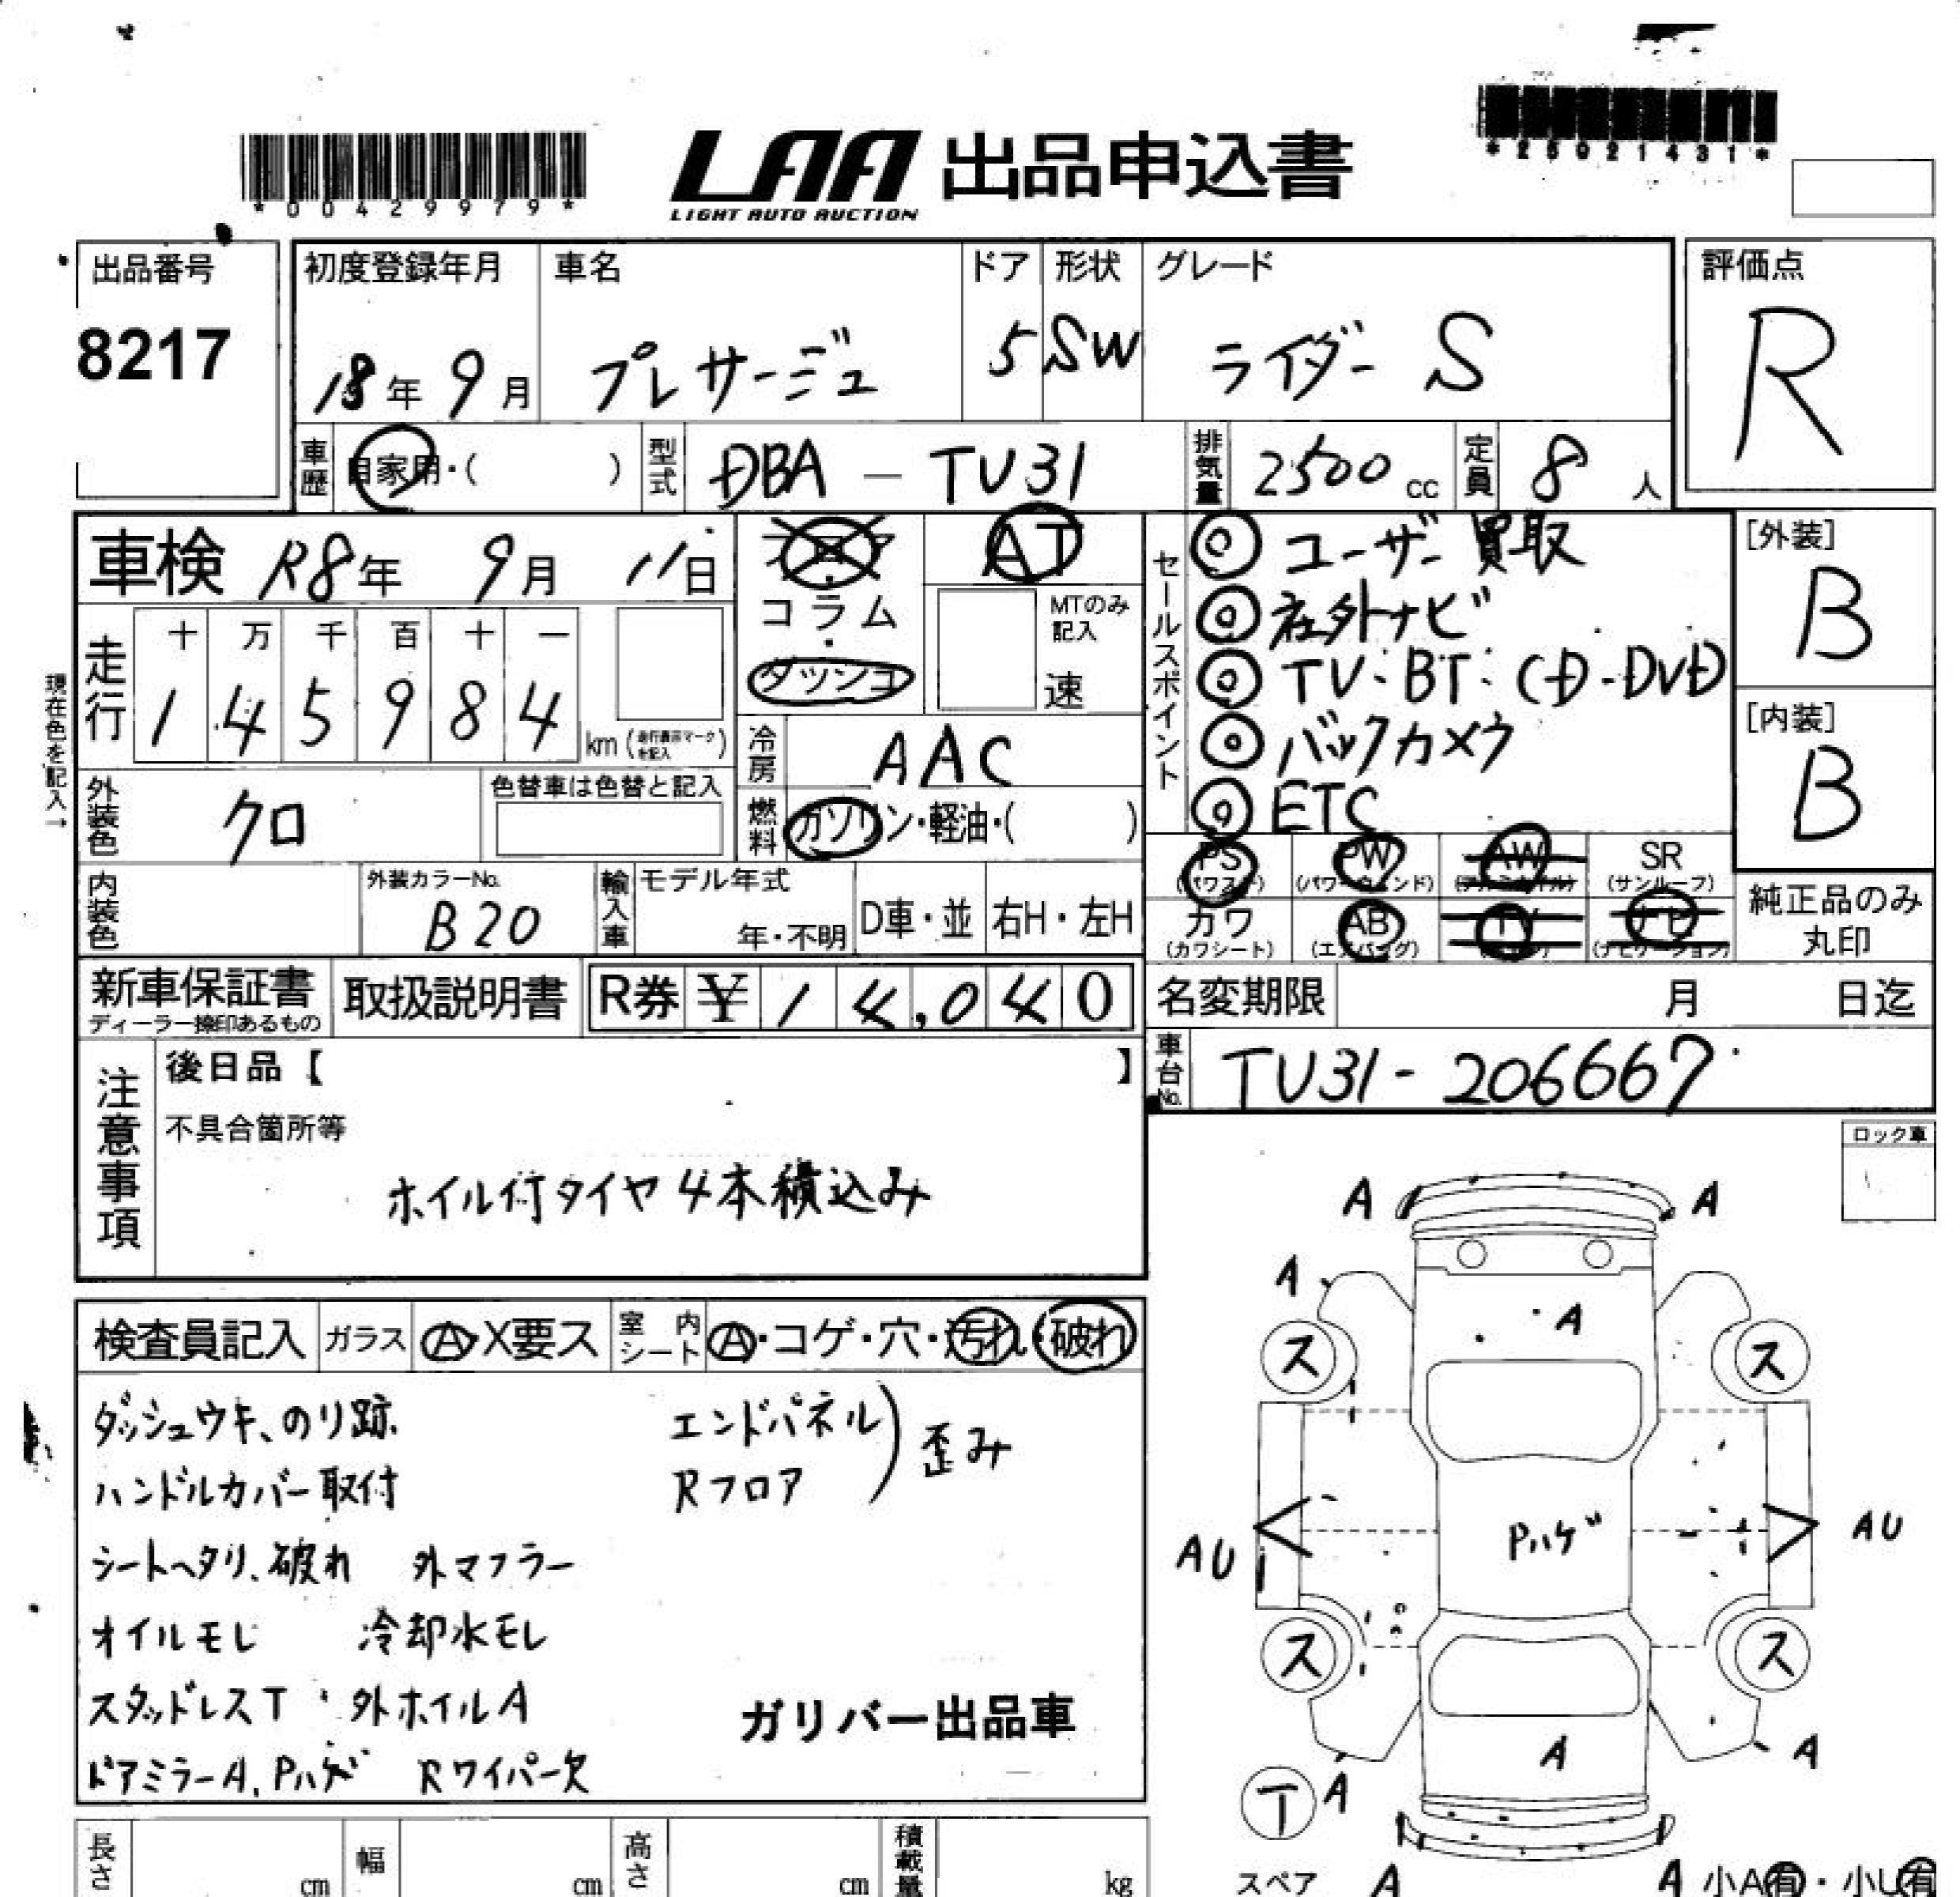 *00429979*
LAA 出品申込書
LIGHT AUTO AUCTION
*25021431*
出品番号
8217
初度登録年月 車名 ドア 形状 グレード
18年 9月 プレサージュ 5 SW ライダー S
評価点
R
車歴 自家用・( ) 型式 DBA - TU31 排気量 2500 cc 定員 8 人
車検 R8年 9月 11日
フロア・コラム・ダッシュ
AT
MTのみ記入
速
現在色を記入→
走行 十 万 千 百 十 一
1 4 5 9 8 4 km (走行表示マークを記入)
冷房 AAC
燃料 ガソリン・軽油・( )
外装色 クロ 色替車は色替と記入
内装色 外装カラーNo. B20 輸入車 モデル年式 年・不明 D車・並 右H・左H
セールスポイント
◎ ユーザー買取
◎ 社外ナビ
◎ TV・BT・CD・DVD
◎ バックカメラ
◎ ETC
[外装]
B
[内装]
B
PS (パワステ) PW (パワーウィンドウ) AW (アルミホイル) SR (サンルーフ)
カワ (カワシート) AB (エアバッグ) TV ナビ (ナビゲーション)
純正品のみ丸印
新車保証書 ディーラー捺印あるもの 取扱説明書 R券 ¥ 14,040
名変期限 月 日迄
車台No. TU31-206667
注意事項
後日品【 】
不具合箇所等
ホイル付タイヤ4本積込み
ロック車
検査員記入 ガラス A・X要ス 室内シート A・コゲ・穴・汚れ・破れ
ダッシュウキ、のり跡 エンドパネル
ハンドルカバー取付 Rフロア ) 歪み
シートヘタリ、破れ 外マフラー
オイルモレ 冷却水モレ
スタッドレスT 外ホイルA
ドアミラーA、Pハゲ Rワイパー欠
ガリバー出品車
A A
A
A
ス ス
Pハゲ
AU AU
ス ス
A
A A
T
スペア A A 小A有・小U有
長さ cm 幅 cm 高さ cm 積載量 kg